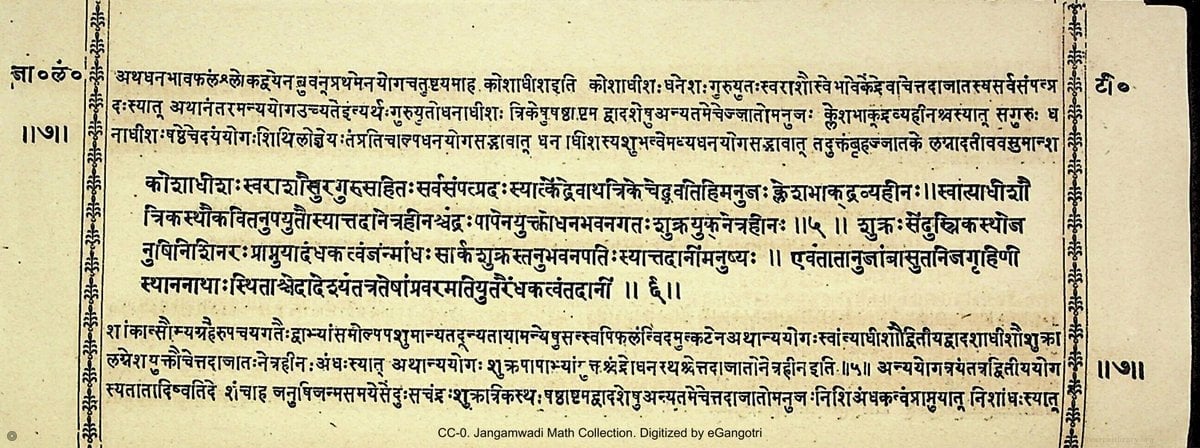 जा०लं०
टी०
॥७॥
अथधनभावफलंश्लोकद्वयेनब्रुवन्प्रथमेनयोगचतुष्टयमाह कोशाधीशइति कोशाधीशःधनेशःगुरुयुतःस्वराशौस्वेभावेकेंद्रेवाचेत्तदाजातस्यसर्वसंपत्प्र
दःस्यात् अथानंतरमन्ययोगउच्यतेइत्यर्थःगुरुयुतोधनाधीशः त्रिकेषुषष्ठाष्टम द्वादशेषुअन्यतमेचेज्जातोमनुजः क्लेशभाक्द्रव्यहीनश्चस्यात् सगुरुः ध
नाधीशःषष्ठेचेदयंयोगःशिथिलोज्ञेयःतंप्रतिचाल्पधनयोगसद्भावात् धन ाधीशस्यशुभत्वेमध्यधनयोगसद्भावात् तदुक्तंबृहज्जातके लग्नादतीववसुमान्श
कोशाधीशःस्वराशौसुरगुरुसहितःसर्वसंपत्प्रदःस्यात्केंद्रेवाथत्रिकेचेद्भवतिहिमनुजः क्लेशभाक्द्रव्यहीनः।।स्वांत्याधीशौ
त्रिकस्थौकवितनुपयुतौस्यात्तदानेत्रहीनश्चंद्रःपापेनयुक्तोधनभवनगतःशुक्रयुक्नेत्रहीनः ॥५ ॥ शुक्रःसेंदुस्त्रिकस्थोज
नुषिनिशिनरःप्राप्नुयादंधकत्वंजन्मांधःसार्कशुक्रस्तनुभवनपतिःस्यात्तदानींमनुष्यः ॥ एवंतातानुजांबासुतनिजगृहिणी
स्थाननाथाःस्थिताश्चेदादेश्यंतत्रतेषांप्रवरमतियुतैरंधकत्वंतदानीं ॥ ६॥
शांकात्सौम्यग्रहैरुपचयगतैःद्वाभ्यांसमोल्पपशुमान्यतदून्यतायामन्येषुसत्स्वपिफलंत्विदमुत्कटेनअथान्ययोगःस्वांत्याधीशौद्वितीयद्वादशाधीशौशुक्रा
लग्नेशयुक्तौचेत्तदाजातःनेत्रहीनःअंधःस्यात् अथान्ययोगः शुक्रपापाभ्यांयुक्तश्चंद्रोधनस्थश्चेत्तदाजातोनेत्रहीनइति॥५॥ अन्ययोगत्रयंतत्रद्वितीययोग
स्यतातादिष्वतिदे शंचाह जनुषिजन्मसमयेसेंदुःसचंद्रःशुक्रात्रिकस्थःषष्ठाष्टमद्वादशेषुअन्यतमेचेत्तदाजातोमनुजःनिशिअंधकत्वंप्राप्नुयात् निशांधःस्यात्
॥७॥
CC-0. Jangamwadi Math Collection. Digitized by eGangotri